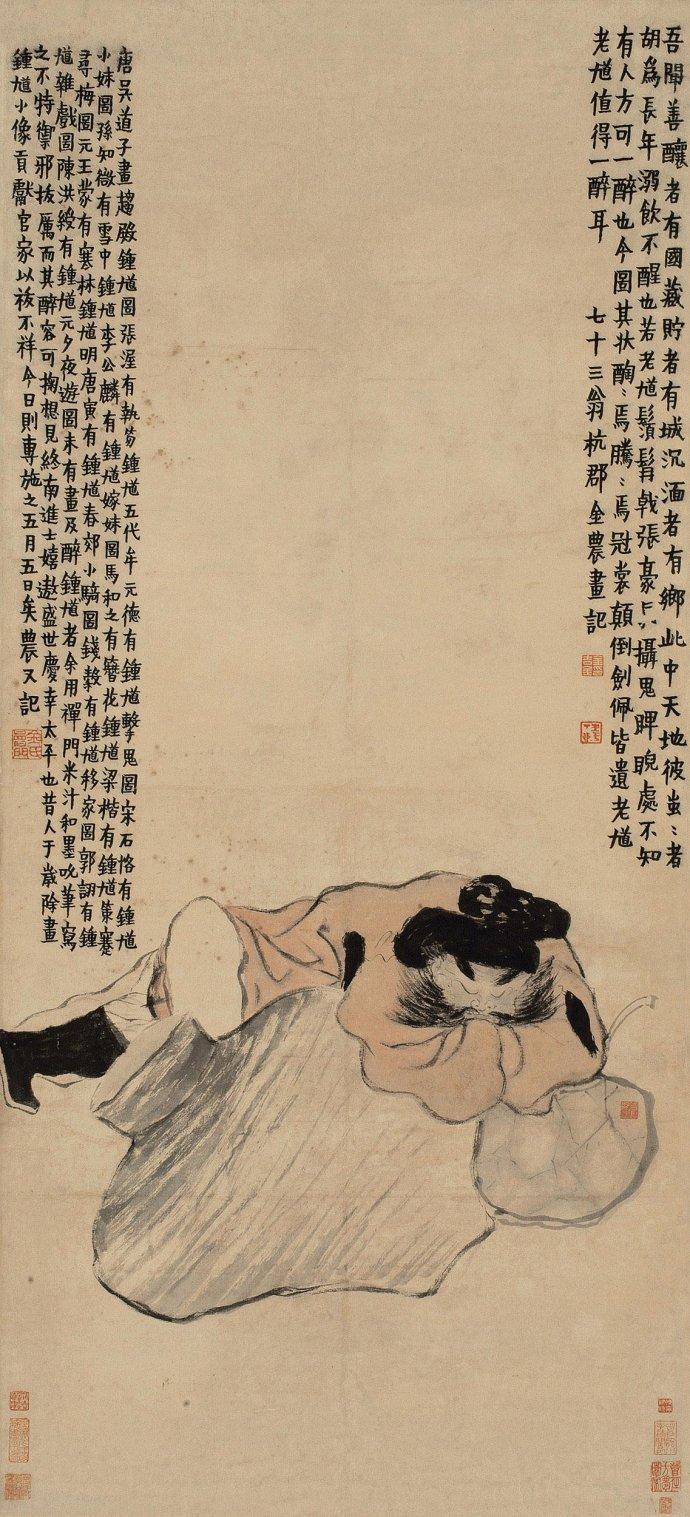 吾聞善釀者有國藏貯者有城沉湎者有鄉此中天地彼蚩〻者
胡為長年溺飲不醒也若老馗鬚髥戟張豪攝鬼睥睨處不知
有人方可一醉也今圖其狀醄〻焉騰〻焉冠裳顛倒劍佩皆遺老馗
老馗值得一醉耳 七十三翁杭郡金農畫記
唐吳道子畫趨殿鍾馗圖張渥有執笏鍾馗五代牟元德有鍾馗擊鬼圖宋石恪有鍾馗
小妹圖孫知微有雪中鍾馗李公麟有鍾馗嫁妹圖馬和之有簪花鍾馗梁楷有鍾馗策蹇
尋梅圖元王蒙有寒林鍾馗明唐寅有鍾馗春郊小騎圖錢穀有鍾馗移家圖郭詡有鍾
馗雜戲圖陳洪綬有鍾馗元夕夜遊圖未有畫及醉鍾馗者余用禪門米汁和墨吮筆寫
之不特禦邪拔厲而其醉容可掬想見終南進士嬉遨盛世慶幸太平也昔人于歲除畫
鍾馗小像貢獻官家以祓不祥今日則專施之五月五日矣農又記